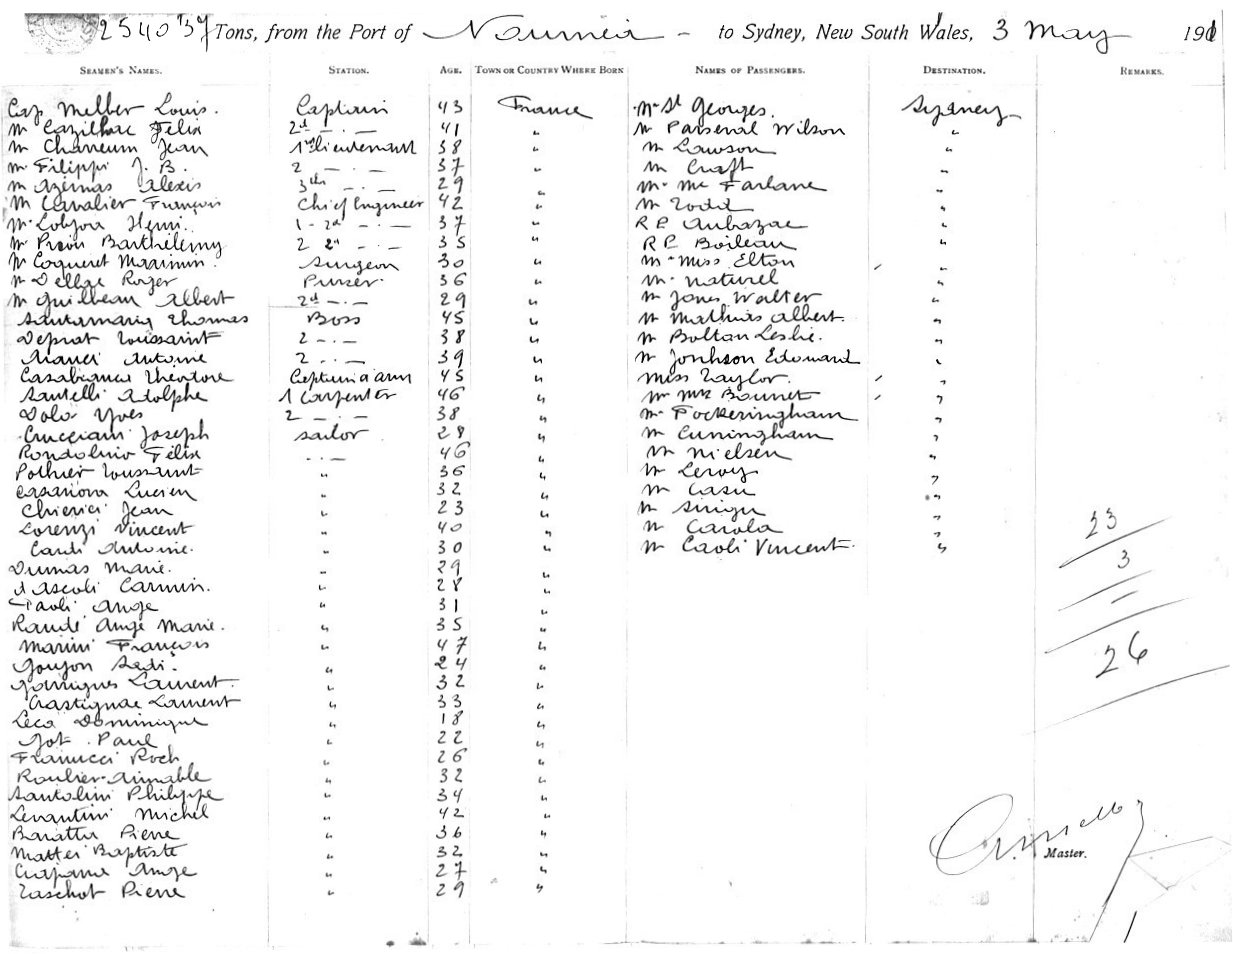 2540 37 Tons, from the Port of Noumea - to Sydney, New South Wales, 3 May 191
SEAMEN'S NAMES. STATION. AGE. TOWN OR COUNTRY WHERE BORN NAMES OF PASSENGERS. DESTINATION. REMARKS.
Cap Melber Louis. Captain 43 France Mr St Georges. Sydney
Mr Cazilhac Felix 2d - . - 41 " Mr Parseval Wilson "
Mr Jean 1st Lieutenant 38 " Mr Lawson "
Mr Filippi J. B. 2 - . - 37 " Mr Craft "
Mr Azémas Alexis 3th - . - 29 " Mr Mc Farlane "
Mr Cavalier François Chief Engineer 42 " Mr Todd "
Mr Henri. 1 - 2d - . - 37 " R P Aubazac "
Mr Barthélemy 2 2d - . - 35 " R P Boileau "
Mr Coqueret Maximin. Surgeon 30 " Mr Miss Elton "
Mr Dellac Roger Purser 36 " Mr Naturel "
Mr Guilbeau Albert 2d - . - 29 " Mr Jones Walter "
Santamaria Thomas Boss 45 " Mr Mathius Albert. "
Deprat Toussaint 2 - . - 38 " Mr Bolton Leslie. "
Antoine 2 . . - 39 " Mr Jonhson Edouard "
Casabianca Théodore Captain a arm 45 " Miss Taylor. "
Santelli Adolphe 1 Carpenter 46 " Mr Mrs Bonnet "
Dolo Yves 2 - . - 38 " Mr Fockeringham "
Crucciani Joseph Sailor 28 " Mr Cuningham "
Rondolino Félix - . - 46 " Mr Nielsen "
Pothier Toussaint " 36 " Mr Leroy "
Casanova Lucien " 32 " Mr Casu "
Chierici Jean " 23 " Mr "
Lorenzi Vincent " 40 " Mr Carola " 23
Cardi Antoine. " 30 " Mr Caoli Vincent. "
Dumas Marie. " 29 " 3
d'Ascoli Carmin. " 28 "
Paoli Ange " 31 " =
Raudé Ange Marie. " 35 "
Marini François " 47 " 26
Goujon Sadi. " 24 "
Garrigues Laurent. " 32 "
Crastignac Laurent " 33 "
Leca Dominique " 18 "
Got. Paul " 22 "
Franucci Roch " 26 "
Roulier Aimable " 32 "
Santolini Philippe " 34 "
Levantini Michel " 42 "
Pierre " 36 "
Mattei Baptiste " 32 " Master.
Ange " 27 "
Taschot Pierre " 29 "